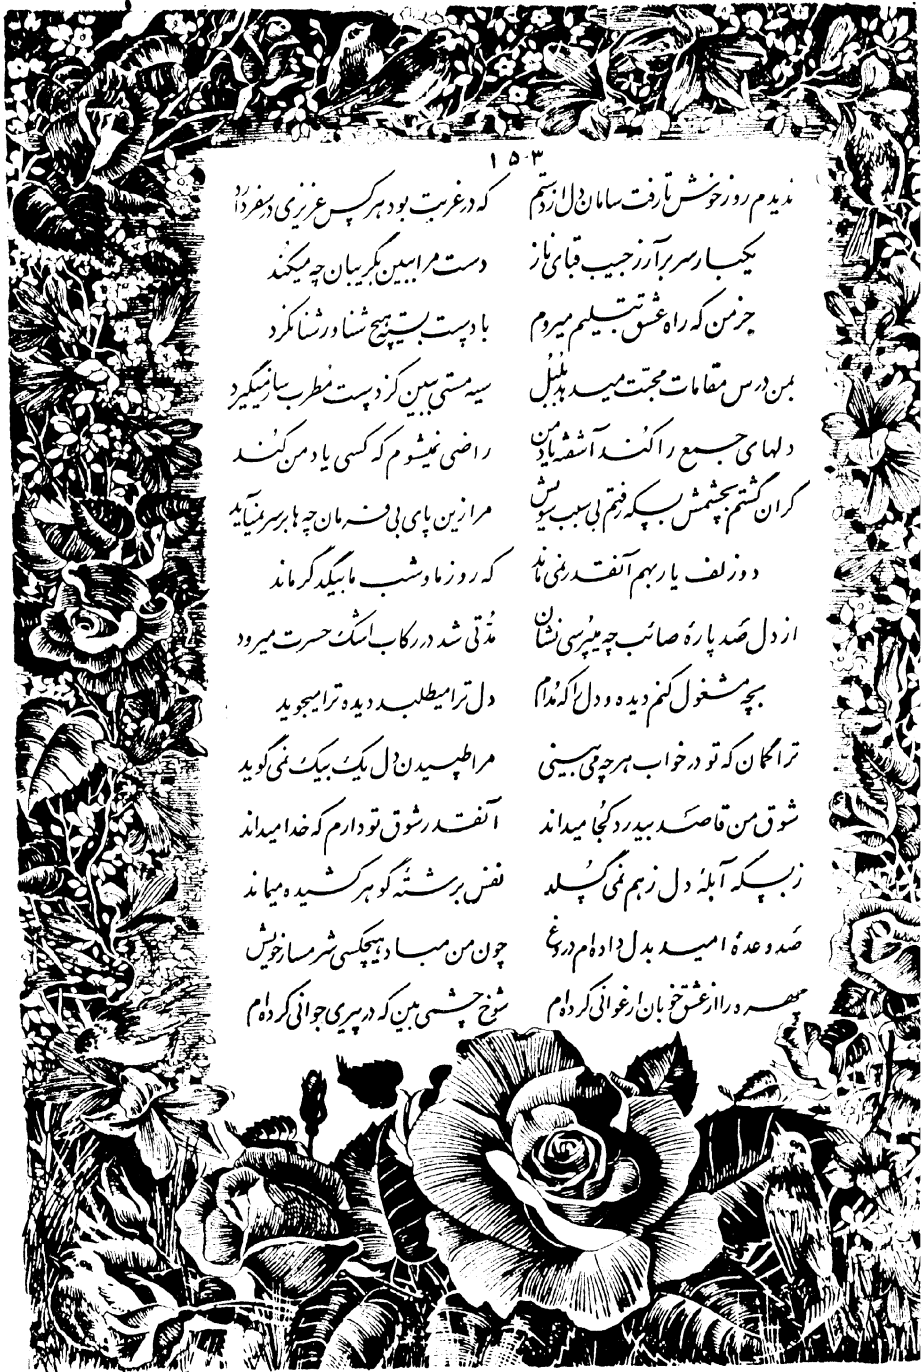 ۱۵۳
ندیدم روز خوش تا رفت سامان دل از دستم که در غربت بود هر کس عزیزی در سفر دارد
یکبار سر برآر ز جیب قبای ناز دست مرا ببین بگریبان چه میکند
جز من که راه عشق بتسلیم میروم با دست بسته هیچ شناور شنا نکرد
بمن درس مقامات محبت میدهد بلبل سیه مستی ببین کز دست مطرب ساز میگیرد
دلهای جمع را کند آشفته یاد من راضی نمیشوم که کسی یاد من کند
گران گشتم بچشمش بسکه رفتم بی سبب سویش مرا زین پای بی فرمان چه ها بر سر نمیآید
دو زلف یار بهم آنقدر نمی ماند که روز ما و شب ما بیکدگر ماند
از دل صد پارۀ صائب چه میپرسی نشان مدتی شد در رکاب اشک حسرت میرود
بچه مشغول کنم دیده و دل را که مدام دل ترا میطلبد دیده ترا میجوید
ترا گمان که تو در خواب هر چه می بینی مرا طپیدن دل یک بیک نمی گوید
شوق من قاصد بیدرد کجا میداند آنقدر شوق تو دارم که خدا میداند
ز بسکه آبلۀ دل ز هم نمی گسلد نفس برشتۀ گوهر کشیده میماند
صد وعدۀ امید بدل داده ام دروغ چون من مباد هیچکسی شرمسار خویش
چهره را از عشق خوبان ارغوانی کرده ام شوخ چشمی بین که در پیری جوانی کرده ام